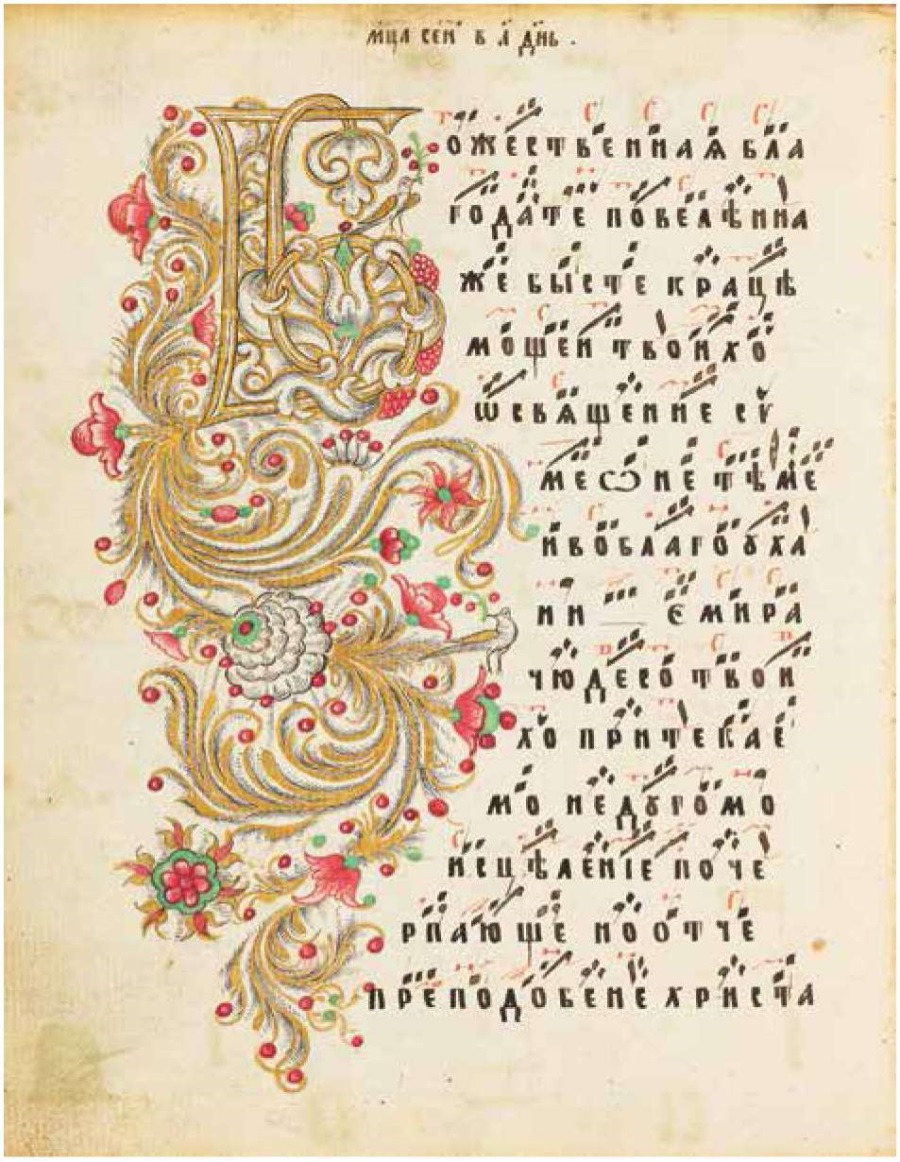 мц҃а сеⷫ҇ в҃ а҃ дн҃ь .
Божественная бла
годате повелѣнна
же бысте крацѣ
мощеи твоихо
ѡсвѧщение сѵ
меѡне тѣме
иво благоꙋха
нии є мира
чюдесо твои
хо притекае
мо недꙋгомо
исцѣленіе поче
рпающе но отче
преподобене христа